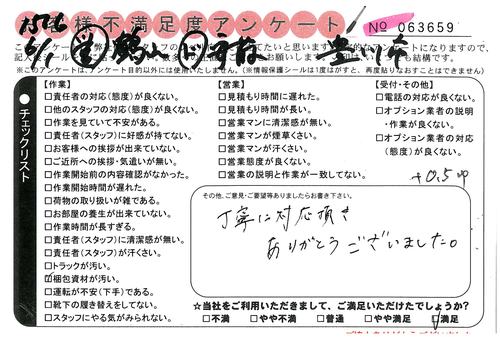 お客様不満足度アンケート
No 063659
※このアンケートは、アンケート目的以外には使用いたしません。(※情報保護シールは1度はがすと、再度貼りなおすことはできません)
チェックリスト
【作業】
□責任者の対応(態度)が良くない。
□他のスタッフの対応(態度)が良くない。
□作業を見ていて不安がある。
□責任者(スタッフ)に好感が持てない。
□お客様への挨拶が出来ていない。
□ご近所への挨拶・気遣いが無い。
□作業開始前の内容確認がなかった。
□作業開始時間が遅れた。
□荷物の取り扱いが雑である。
□お部屋の養生が出来ていない。
□作業時間が長すぎる。
□責任者(スタッフ)に清潔感が無い。
□責任者(スタッフ)が汗くさい。
□トラックが汚い。
☑梱包資材が汚い。
□運転が安率(下手)である。
□靴下の履き替えをしてない。
□スタッフにやる気がみられない。
【営業】
□見積もり時間に遅れた。
□見積もり時間が長い。
□営業マンに清潔感が無い。
□営業マンが煙草くさい。
□営業マンが汗くさい。
□営業態度が良くない。
□営業の説明と作業が一致してない。
【受付・その他】
□電話の対応が良くない。
□オプション業者の説明
・作業が良くない。
□オプション業者の対応
(態度)が良くない。
+0.5
その他、ご意見・ご要望等ありましたらお書き下さい。
丁寧に対応頂き
ありがとうございました。
☆当社をご利用いただきまして、ご満足いただけたでしょうか?
□不満 □やや不満 □普通 □やや満足 ☑満足